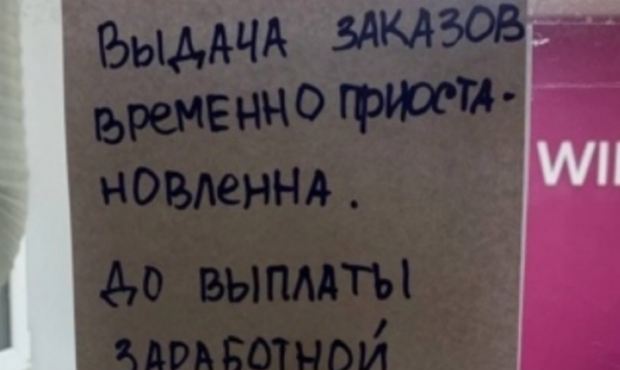 ВЫДАЧА ЗАКАЗОВ
ВРЕМЕННО ПРИОСТА-
НОВЛЕННА.
ДО ВЫПЛАТЫ
ЗАРАБОТНОЙ
WI